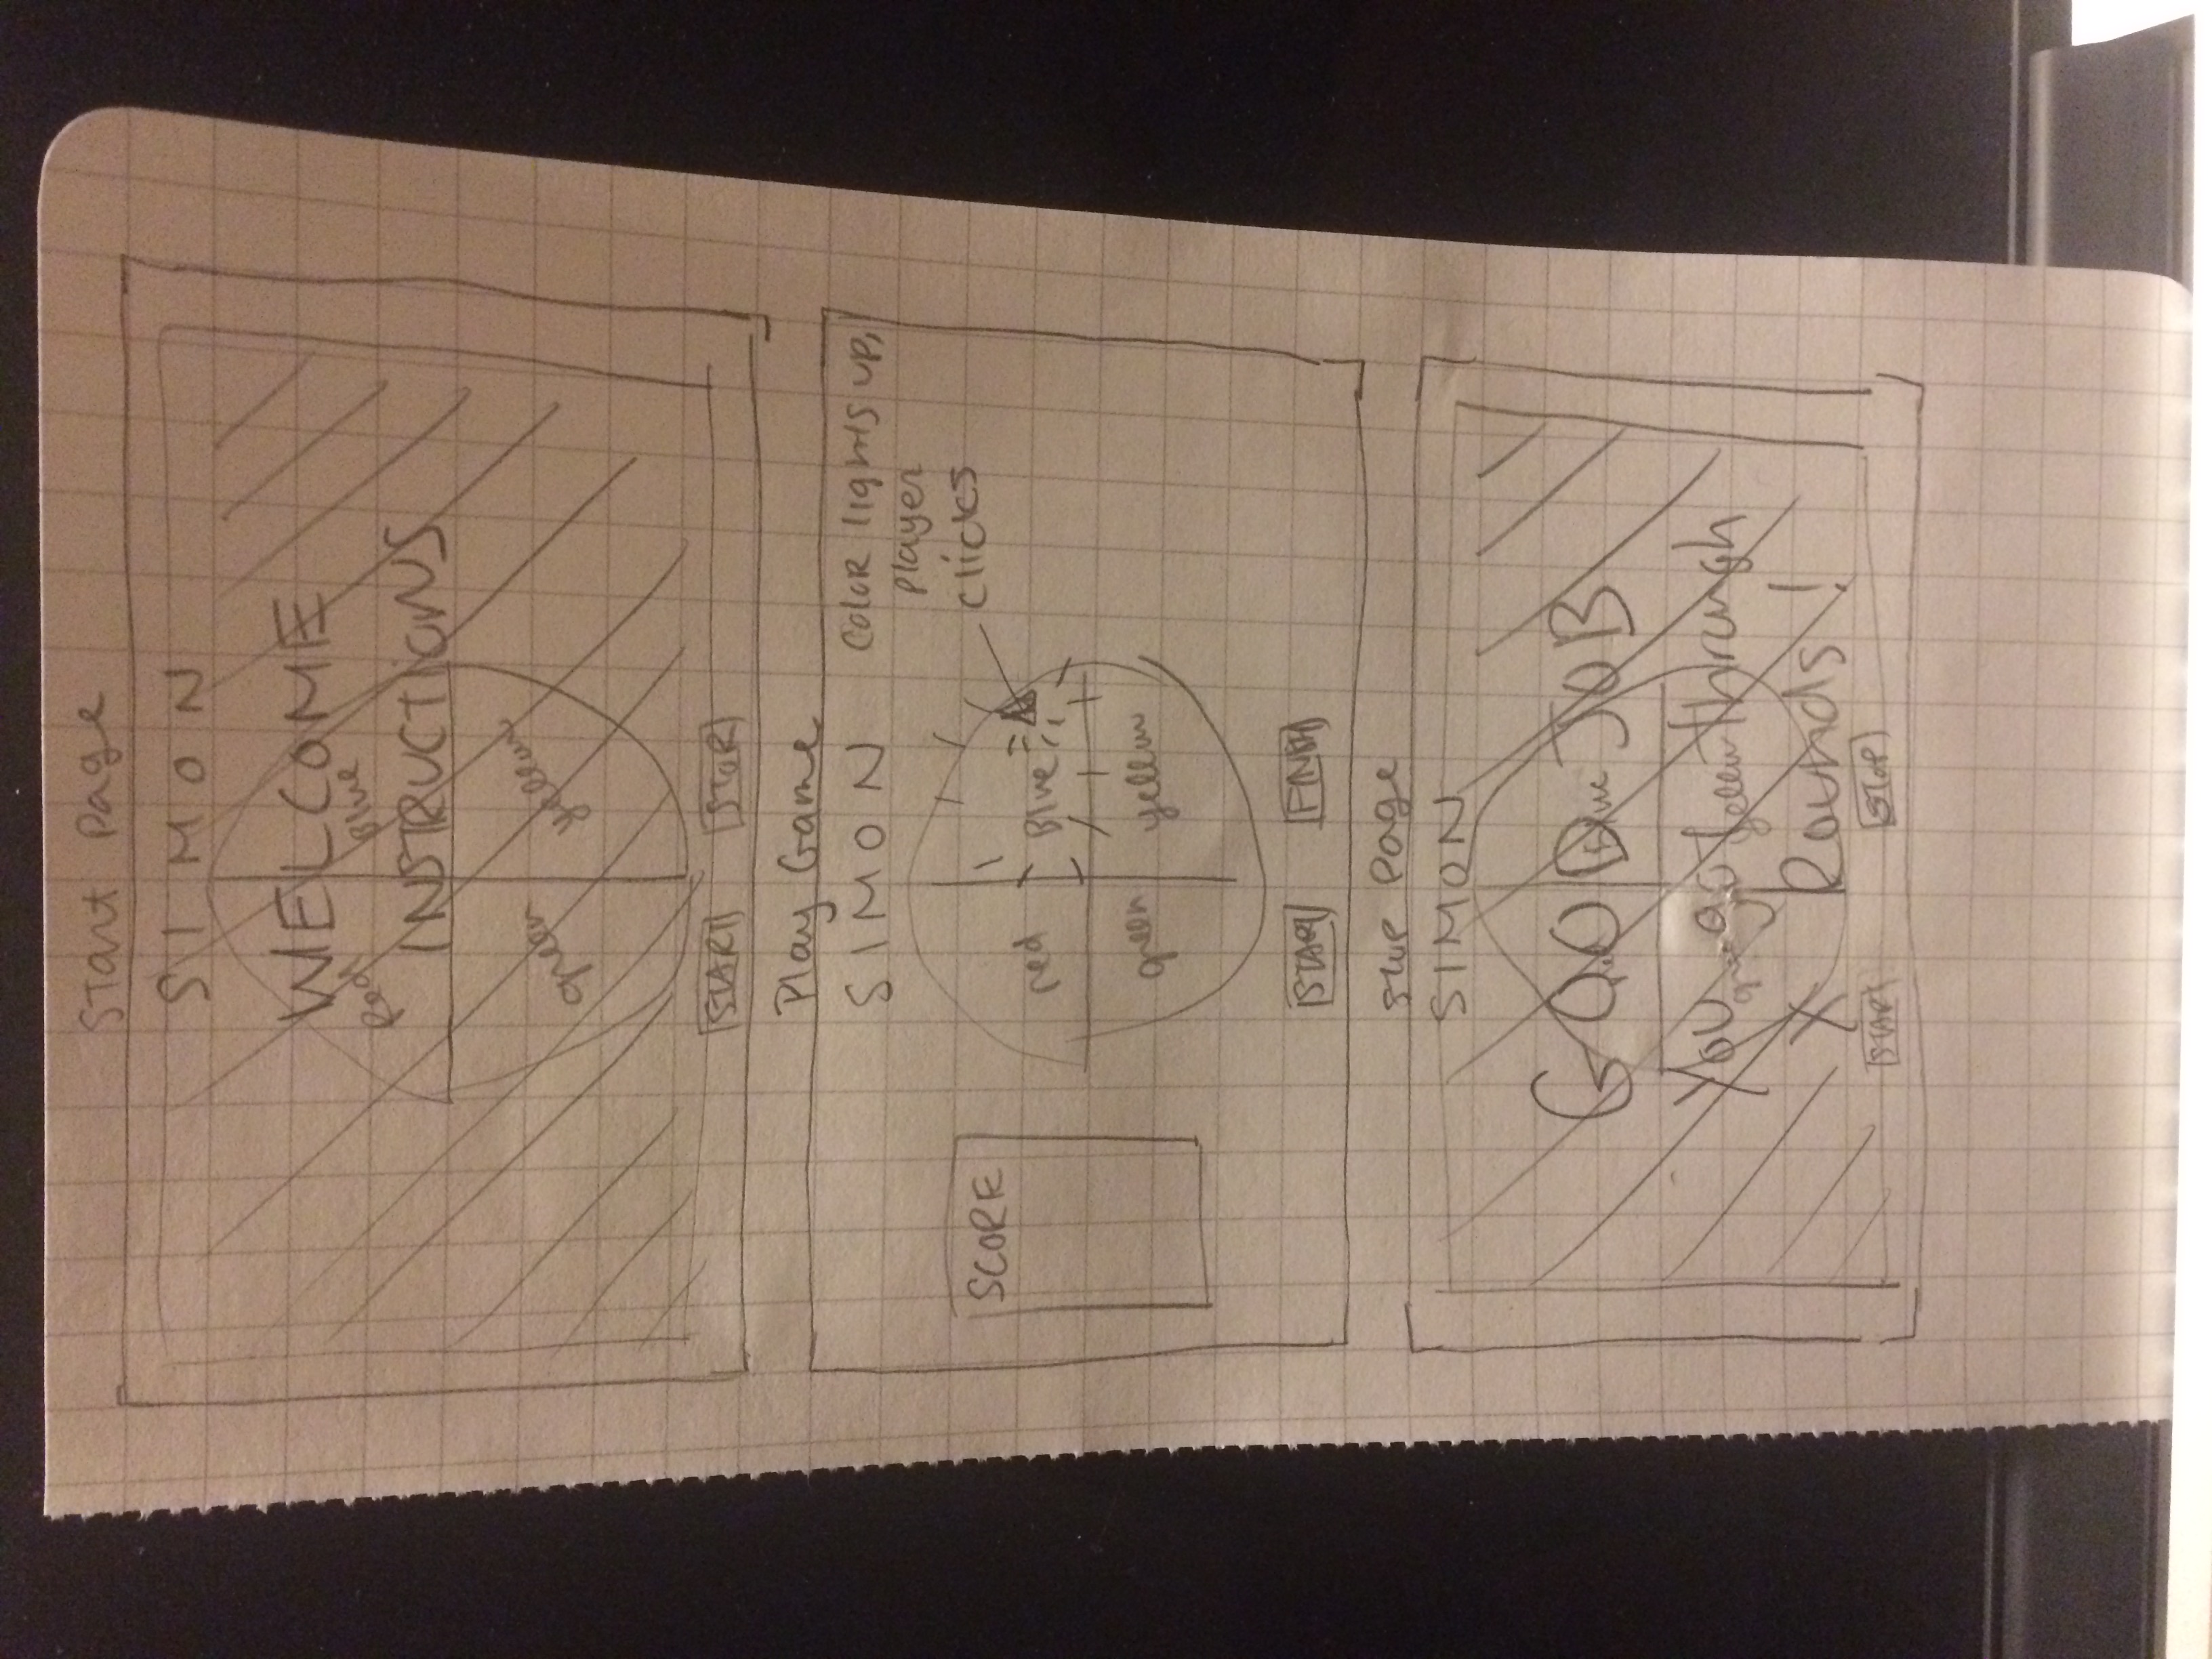 Start Page
SIMON
WELCOME
Red Blue
INSTRUCTIONS
green yellow
START STOP
Play Game
SIMON
Color lights up,
player
clicks
SCORE
red Blue
green yellow
START FINISH
Stop Page
SIMON
GOOD JOB
red Blue
You got through
green yellow
X Rounds!
START STOP